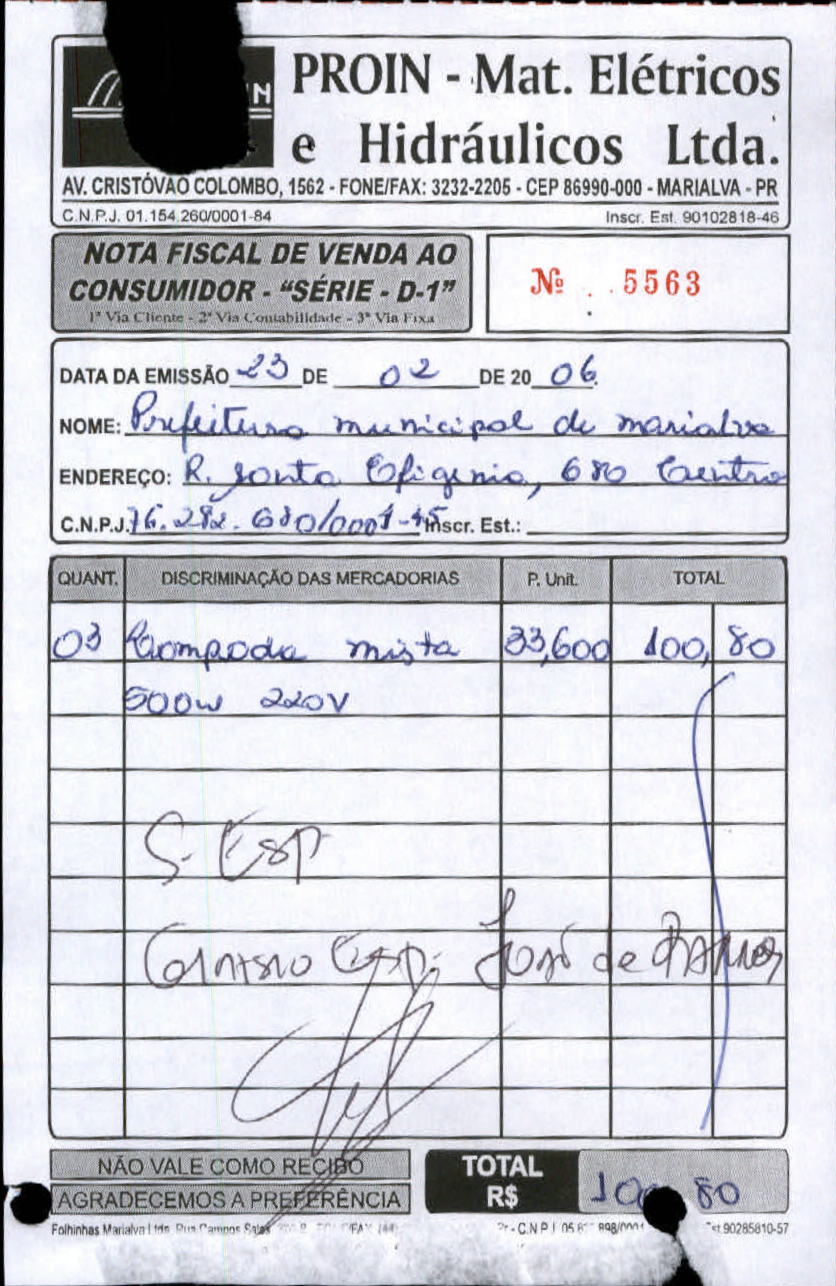 PROIN - Mat. Elétricos
e Hidráulicos Ltda.
AV. CRISTÓVAO COLOMBO, 1562 - FONE/FAX: 3232-2205 - CEP 86990-000 - MARIALVA - PR
C.N.P.J. 01.154.260/0001-84 Inscr. Est. 90102818-46
NOTA FISCAL DE VENDA AO
CONSUMIDOR - "SÉRIE - D-1"
1ª Via Cliente - 2ª Via Contabilidade - 3ª Via Fixa
Nº 5563
DATA DA EMISSÃO 23 DE 02 DE 20 06
NOME: Prefeitura municipal de marialva
ENDEREÇO: R. Santa Efigenia, 680 Centro
C.N.P.J. 76.282.680/0001-45 Inscr. Est.:
QUANT. DISCRIMINAÇÃO DAS MERCADORIAS P. Unit. TOTAL
03 Lampada mista 33,600 100,80
500W 220V
S. Esp
Ginásio Esp. José de
NÃO VALE COMO RECIBO
AGRADECEMOS A PREFERÊNCIA
TOTAL
R$ 100,80
Folhinhas Marialva Ltda. Rua Campos Sales
C.N.P.J. 05. 898/0001 90285810-57